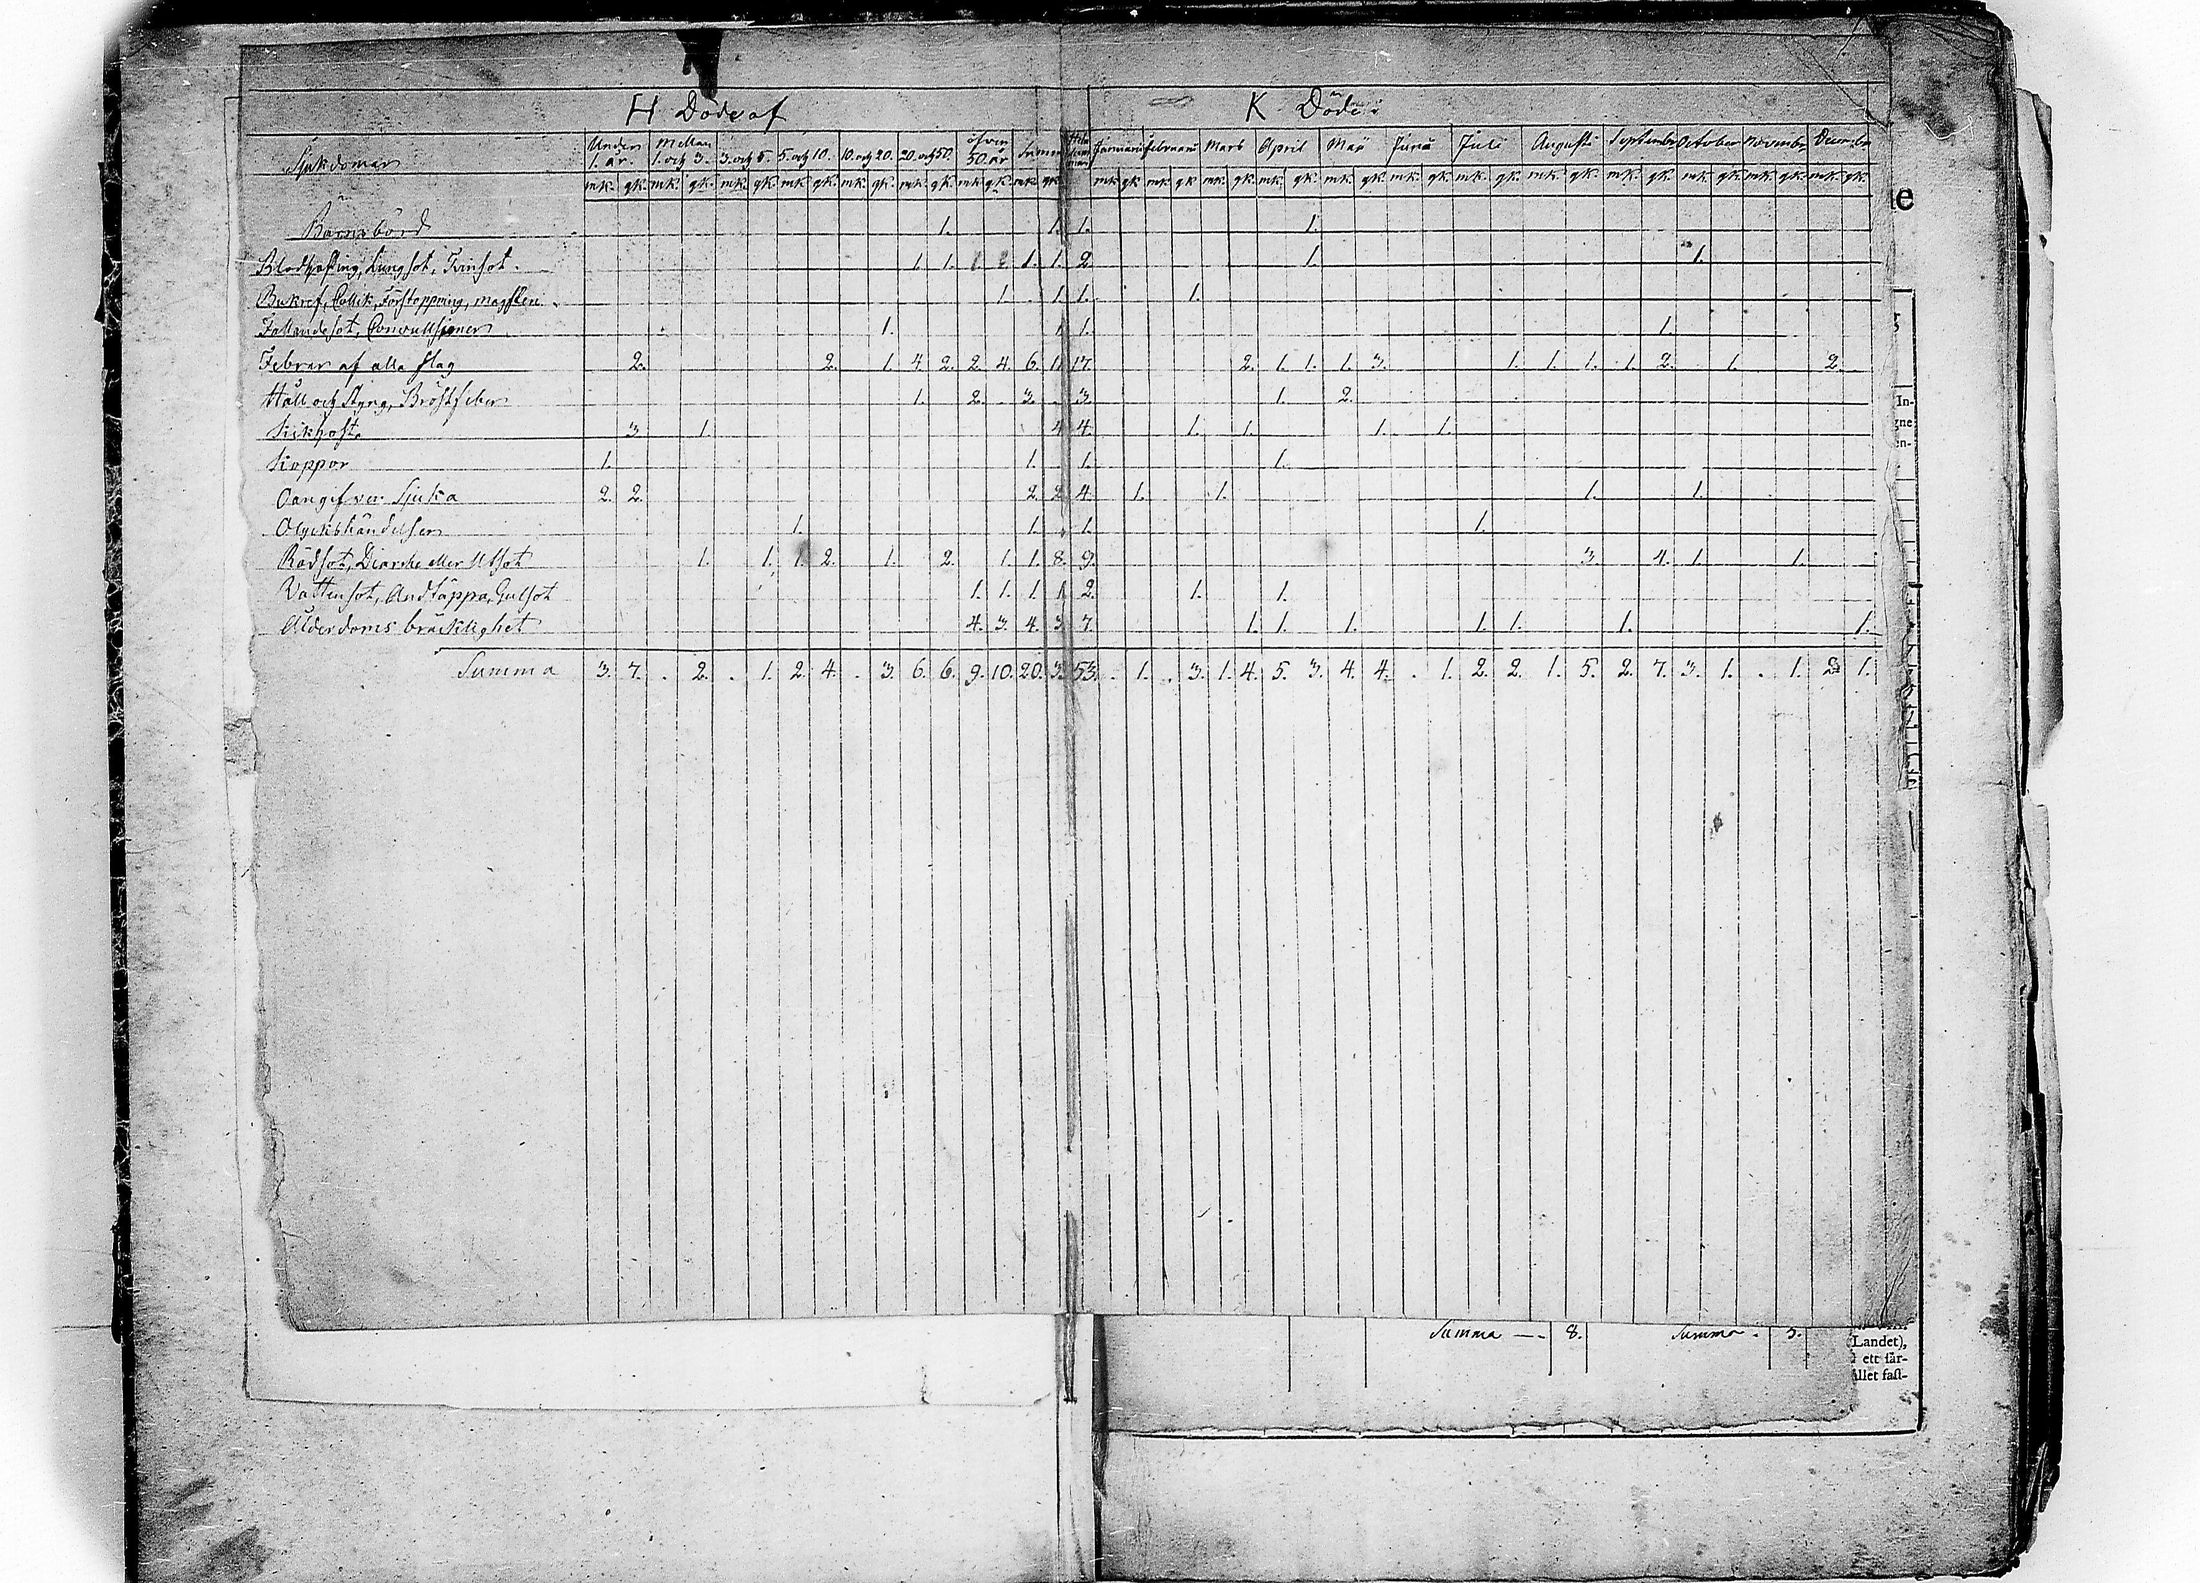 H Döde af K Döde i
Sjukdomar Under 1. år. Mellan 1. och 3. 3. och 5. 5. och 10. 10. och 20. 20. och 50. öfver 50 år Januari Februari Mars April Maii Junii Julii Augusti September October November December
mk. qk. mk. qk. mk. qk. mk. qk. mk. qk. mk. qk. mk. qk. mk. qk. mk. qk. mk. qk. mk. qk. mk. qk. mk. qk. mk. qk. mk. qk. mk. qk. mk. qk. mk. qk. mk. qk. mk. qk.
Barnsbörd 1. 1. 1. 1.
Blodhosting, Lungsot, Tvinsot. 1. 1. 1. 1. 2 1. 1.
Bukref, Collik, Förstoppning, magsten. 1. 1 1. 1.
Fallandesot, Convulsioner 1. 1 1. 1.
Febrar af alla slag 2. 2. 1. 4. 2. 2. 4. 6. 11 17. 2. 1. 1. 1. 3. 1. 1. 1. 1. 2. 1. 2.
Håll och styng, Bröstfeber 1. 2. 3. 3. 1. 2.
Kikhosta 3 1. 4 4. 1. 1. 1. 1.
Koppor 1. 1. 1. 1.
Oangifven Sjuka 2. 2. 2. 2 4. 1. 1. 1. 1.
Olyckshändelser 1. 1. 1. 1.
Rödsot, Diarrhe eller Utsot 1. 1. 1 2. 1. 2. 1. 1. 8. 9. 3. 4. 1. 1.
Vattensot, Andtäppa, Gulsot 1. 1. 1. 1 2. 1. 1.
Ålderdoms bräcklighet 4. 3. 4. 3 7. 1. 1. 1. 1. 1. 1. 1.
Summa 3. 7. . 2. . 1. 2. 4. . 3. 6. 6. 9. 10. 20. 3. 53. . 1. . 3. 1. 4. 5. 3. 4. 4. . 1. 2. 2. 1. 5. 2. 7. 3. 1. . 1. 2 1.
Summa — 8. Summa . 5.
(Landet),
ett sär-
ållet fast-
In-
gne
en-